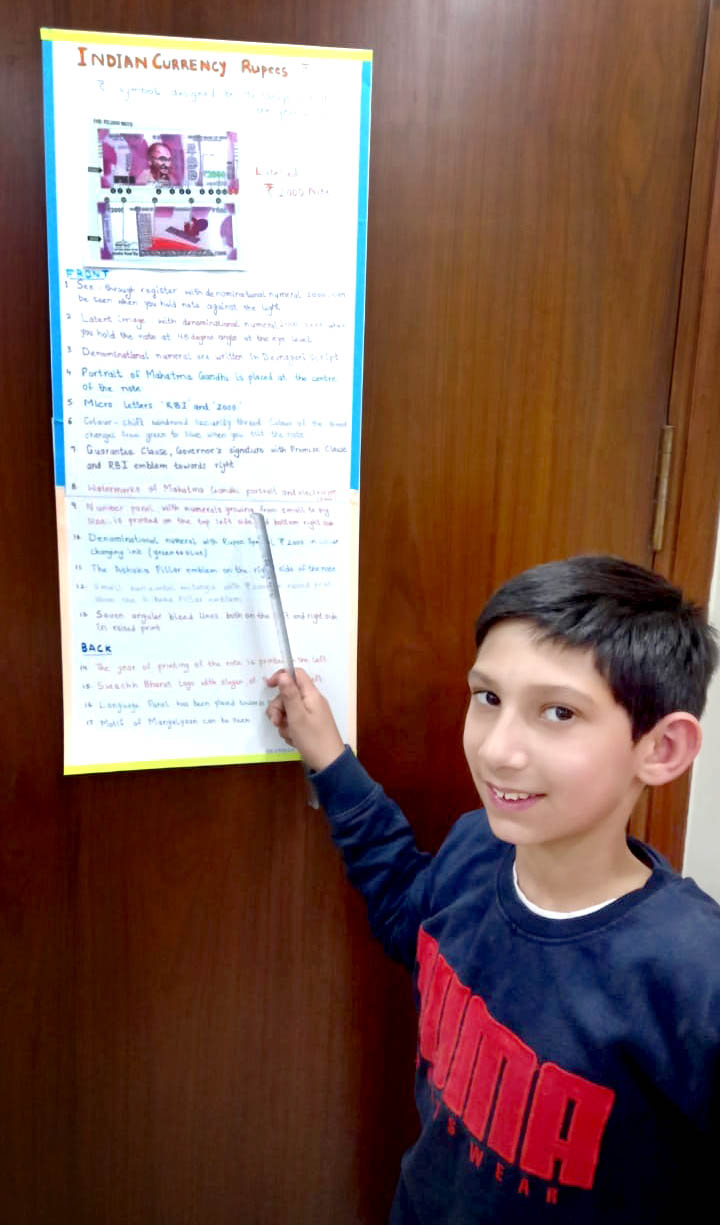 INDIAN CURRENCY Rupees ₹
₹ symbol designed
THE RS.2000 NOTE
₹ 2000 Note
FRONT
1 See-through register with denominational numeral 2000 can
be seen when you hold note against the light
2 Latent image with denominational numeral 2000 seen when
you hold the note at 45 degree angle at the eye level
3 Denominational numeral are written in Devnagari Script
4 Portrait of Mahatma Gandhi is placed at the centre
of the note
5 Micro letters 'RBI' and '2000'
6 Colour-shift windowed security thread. Colour of the thread
changes from green to blue when you tilt the note
7 Guarantee Clause, Governor's signature with Promise Clause
and RBI emblem towards right
8 Watermarks of Mahatma Gandhi portrait and electrotype
9 Number panel with numerals growing from small to big
size is printed on the top left side and bottom right side
10 Denominational numeral with Rupee Symbol ₹2000 in colour
changing ink (green to blue)
11 The Ashoka Pillar emblem on the right side of the note
12 Small horizontal rectangle with ₹ raised print
above the Ashoka Pillar emblem
13 Seven angular bleed lines both on the left and right side
in raised print
BACK
14 The year of printing of the note is printed on the left
15 Swachh Bharat Logo with slogan, left
16 Language Panel has been placed towards
17 Motif of Mangalyaan can be seen
PUMA
SWEAR